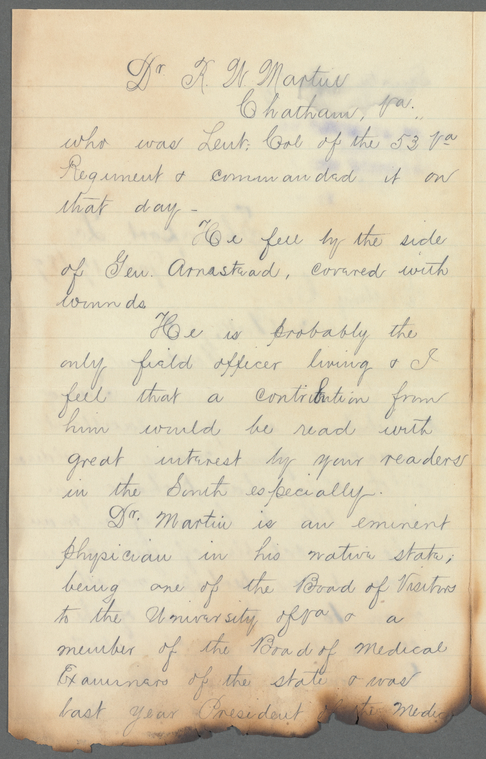 Dr R. W Martin
Chatham, Va.,
who was Leut: Col of the 53 Va
Regiment & commanded it on
that day -
He fell by the side
of Gen. Armstead, covered with
wounds
He is probably the
only field officer living & I
feel that a contribution from
him would be read with
great interest by your readers
in the South especially.
Dr. Martin is an eminent
physician in his native state;
being one of the Board of Visitors
to the University of Va & a
member of the Board of Medical
Examiners of the state & was
last year President